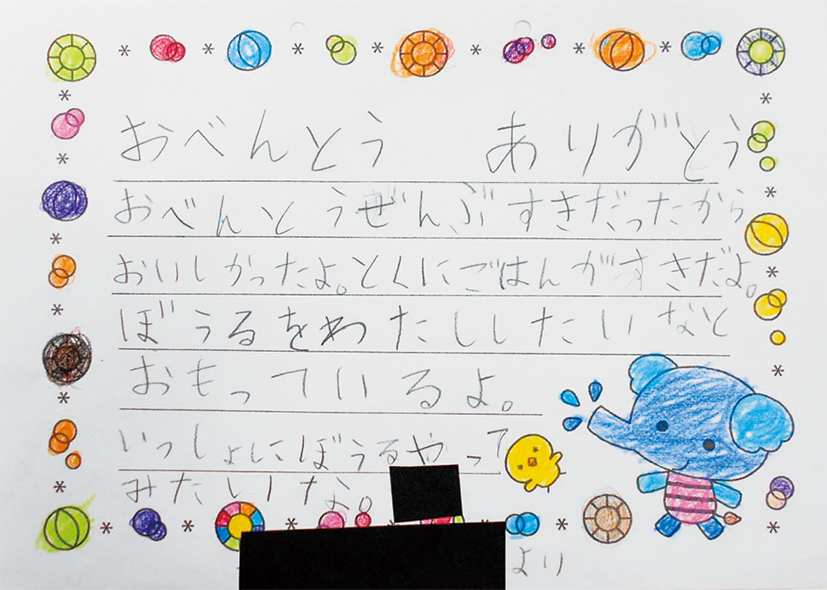 おべんとう ありがとう
おべんとうぜんぶすきだったから
おいしかったよ。とくにごはんがすきだよ。
ぼうるをわたししたいなと
おもっているよ。
いっしょにぼうるやって
みたいな。
より